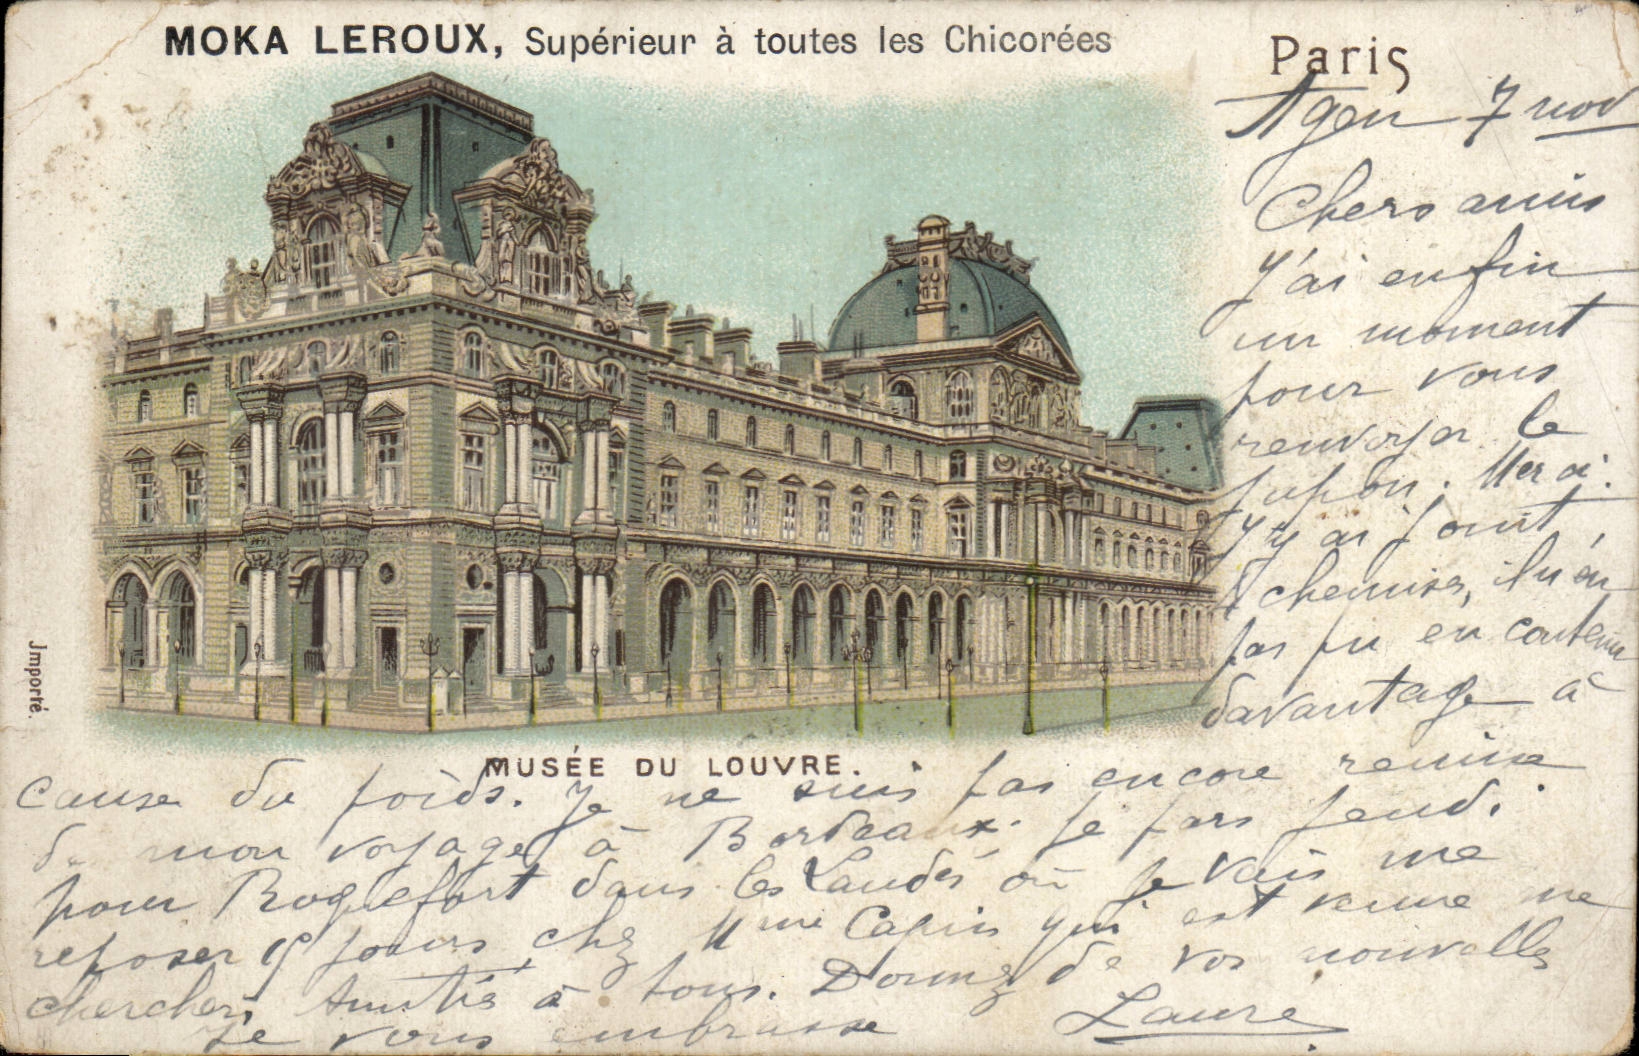 MOKA LEROUX, Supérieur à toutes les Chicorées
Paris
Agen 7 nov
Chers amis
J'ai enfin
un moment
pour vous
renvoyer le
jupon. Merci.
J'y ai joint
chemises, il n'en
pas pu en contenir
davantage à
MUSÉE DU LOUVRE.
cause du poids. Je ne suis pas encore remise
de mon voyage à Bordeaux. Je pars jeudi
pour Roquefort dans les Landes où je vais me
reposer 15 jours chez Mme Capin qui est venue me
chercher. Amitiés à tous. Donnez de vos nouvelles
Je vous embrasse Laure
Importé.